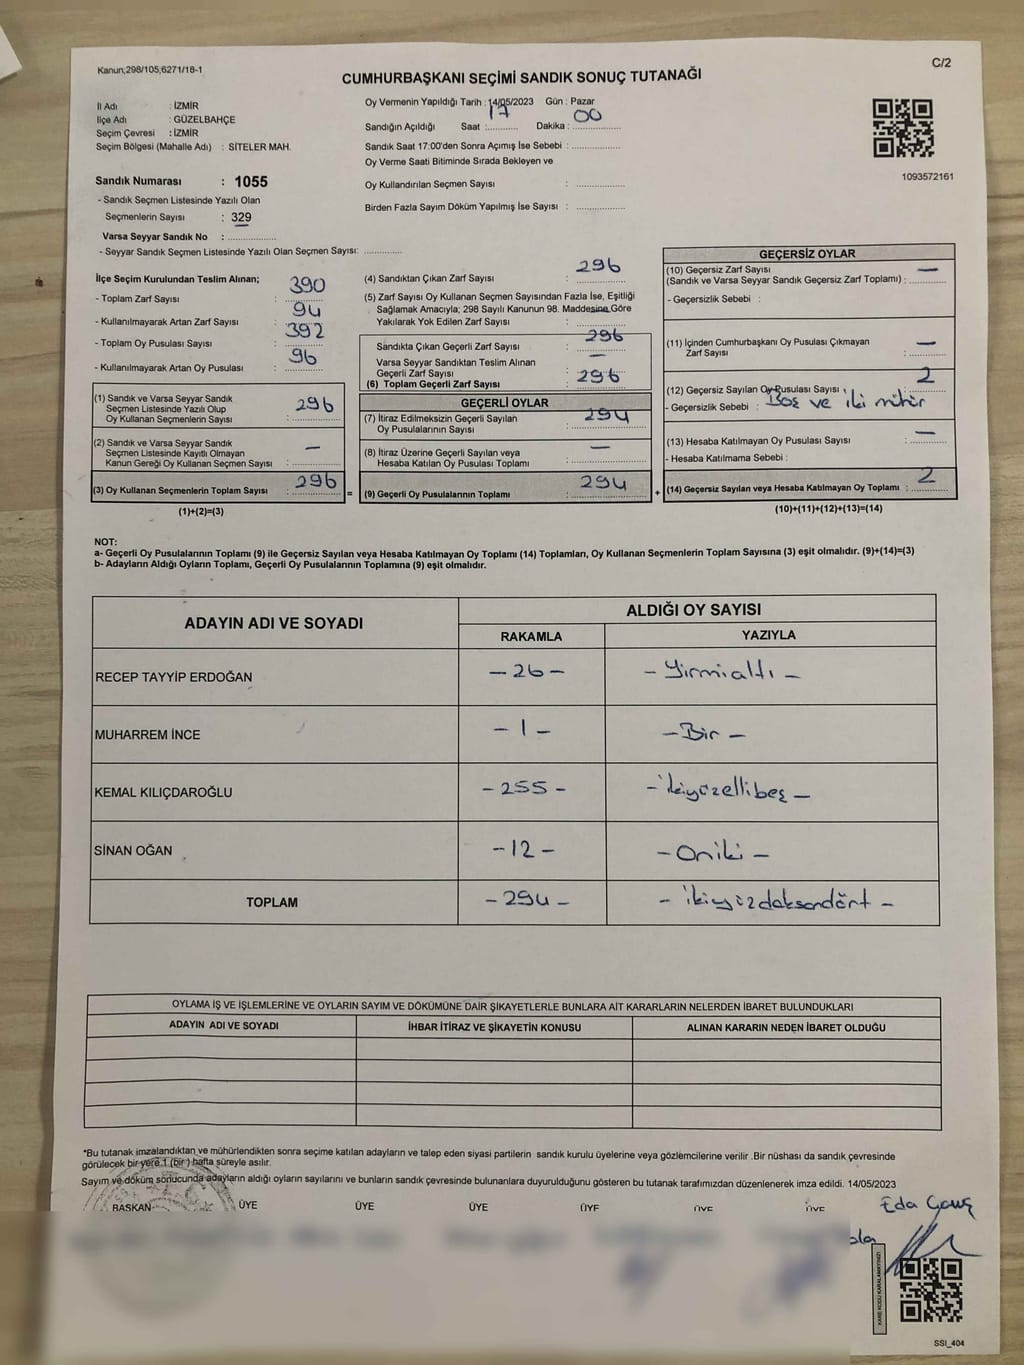 Kanun;298/105;6271/18-1
C/2
CUMHURBAŞKANI SEÇİMİ SANDIK SONUÇ TUTANAĞI
İl Adı : İZMİR
İlçe Adı : GÜZELBAHÇE
Seçim Çevresi : İZMİR
Seçim Bölgesi (Mahalle Adı) : SİTELER MAH.
Sandık Numarası : 1055
- Sandık Seçmen Listesinde Yazılı Olan
Seçmenlerin Sayısı : 329
Varsa Seyyar Sandık No :
- Seyyar Sandık Seçmen Listesinde Yazılı Olan Seçmen Sayısı:
Oy Vermenin Yapıldığı Tarih : 14/05/2023 Gün : Pazar
Sandığın Açıldığı Saat : 17 Dakika : 00
Sandık Saat 17:00'den Sonra Açımış İse Sebebi :
Oy Verme Saati Bitiminde Sırada Bekleyen ve
Oy Kullandırılan Seçmen Sayısı :
Birden Fazla Sayım Döküm Yapılmış İse Sayısı :
1093572161
İlçe Seçim Kurulundan Teslim Alınan;
- Toplam Zarf Sayısı : 390
- Kullanılmayarak Artan Zarf Sayısı : 94
- Toplam Oy Pusulası Sayısı : 392
- Kullanılmayarak Artan Oy Pusulası : 96
(1) Sandık ve Varsa Seyyar Sandık
Seçmen Listesinde Yazılı Olup
Oy Kullanan Seçmenlerin Sayısı : 296
(2) Sandık ve Varsa Seyyar Sandık
Seçmen Listesinde Kayıtlı Olmayan
Kanun Gereği Oy Kullanan Seçmen Sayısı : —
(3) Oy Kullanan Seçmenlerin Toplam Sayısı : 296
(1)+(2)=(3)
=
(4) Sandıktan Çıkan Zarf Sayısı : 296
(5) Zarf Sayısı Oy Kullanan Seçmen Sayısından Fazla İse, Eşitliği
Sağlamak Amacıyla; 298 Sayılı Kanunun 98. Maddesine Göre
Yakılarak Yok Edilen Zarf Sayısı :
Sandıkta Çıkan Geçerli Zarf Sayısı : 296
Varsa Seyyar Sandıktan Teslim Alınan
Geçerli Zarf Sayısı : —
(6) Toplam Geçerli Zarf Sayısı : 296
GEÇERLİ OYLAR
(7) İtiraz Edilmeksizin Geçerli Sayılan
Oy Pusulalarının Sayısı : 294
(8) İtiraz Üzerine Geçerli Sayılan veya
Hesaba Katılan Oy Pusulası Toplamı : —
(9) Geçerli Oy Pusulalarının Toplamı : 294
+
GEÇERSİZ OYLAR
(10) Geçersiz Zarf Sayısı
(Sandık ve Varsa Seyyar Sandık Geçersiz Zarf Toplamı) : —
- Geçersizlik Sebebi :
(11) İçinden Cumhurbaşkanı Oy Pusulası Çıkmayan
Zarf Sayısı : —
(12) Geçersiz Sayılan Oy Pusulası Sayısı : 2
- Geçersizlik Sebebi : Boş ve iki mühür
(13) Hesaba Katılmayan Oy Pusulası Sayısı : —
- Hesaba Katılmama Sebebi :
(14) Geçersiz Sayılan veya Hesaba Katılmayan Oy Toplamı : 2
(10)+(11)+(12)+(13)=(14)
NOT:
a- Geçerli Oy Pusulalarının Toplamı (9) ile Geçersiz Sayılan veya Hesaba Katılmayan Oy Toplamı (14) Toplamları, Oy Kullanan Seçmenlerin Toplam Sayısına (3) eşit olmalıdır. (9)+(14)=(3)
b- Adayların Aldığı Oyların Toplamı, Geçerli Oy Pusulalarının Toplamına (9) eşit olmalıdır.
ADAYIN ADI VE SOYADI
ALDIĞI OY SAYISI
RAKAMLA YAZIYLA
RECEP TAYYİP ERDOĞAN - 26 - - Yirmialtı -
MUHARREM İNCE - 1 - - Bir -
KEMAL KILIÇDAROĞLU - 255 - - ikiyüzellibeş -
SİNAN OĞAN - 12 - - Oniki -
TOPLAM - 294 - - ikiyüzdoksandört -
OYLAMA İŞ VE İŞLEMLERİNE VE OYLARIN SAYIM VE DÖKÜMÜNE DAİR ŞİKAYETLERLE BUNLARA AİT KARARLARIN NELERDEN İBARET BULUNDUKLARI
ADAYIN ADI VE SOYADI İHBAR İTİRAZ VE ŞİKAYETİN KONUSU ALINAN KARARIN NEDEN İBARET OLDUĞU
*Bu tutanak imzalandıktan ve mühürlendikten sonra seçime katılan adayların ve talep eden siyasi partilerin sandık kurulu üyelerine veya gözlemcilerine verilir .Bir nüshası da sandık çevresinde
görülecek bir yere 1 (bir) hafta süreyle asılır.
Sayım ve döküm sonucunda adayların aldığı oyların sayılarını ve bunların sandık çevresinde bulunanlara duyurulduğunu gösteren bu tutanak tarafımızdan düzenlenerek imza edildi. 14/05/2023
BAŞKAN ÜYE ÜYE ÜYE ÜYE ÜYE ÜYE
Eda
KARE KODU KARALAMAYINIZ!
SSI_404